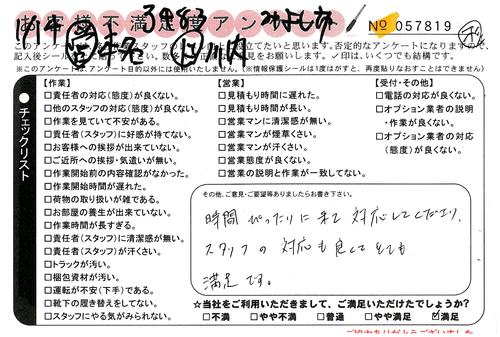 お客様不満足度アンケート
3983
みよし市
No 057819
このアンケートは
否定的なアンケートになりますので、
記入後シール
見をお願いします。✓印は、いくつでも結構です。
※このアンケートは、アンケート目的以外には使用いたしません。(※情報保護シールは1度はがすと、再度貼りなおすことはできません)
チェックリスト
【作業】
□責任者の対応(態度)が良くない。
□他のスタッフの対応(態度)が良くない。
□作業を見ていて不安がある。
□責任者(スタッフ)に好感が持てない。
□お客様への挨拶が出来ていない。
□ご近所への挨拶・気遣いが無い。
□作業開始前の内容確認がなかった。
□作業開始時間が遅れた。
□荷物の取り扱いが雑である。
□お部屋の養生が出来ていない。
□作業時間が長すぎる。
□責任者(スタッフ)に清潔感が無い。
□責任者(スタッフ)が汗くさい。
□トラックが汚い。
□梱包資材が汚い。
□運転が不安(下手)である。
□靴下の履き替えをしてない。
□スタッフにやる気がみられない。
【営業】
□見積もり時間に遅れた。
□見積もり時間が長い。
□営業マンに清潔感が無い。
□営業マンが煙草くさい。
□営業マンが汗くさい。
□営業態度が良くない。
□営業の説明と作業が一致してない。
【受付・その他】
□電話の対応が良くない。
□オプション業者の説明
・作業が良くない。
□オプション業者の対応
(態度)が良くない。
その他、ご意見・ご要望等ありましたらお書き下さい。
時間ぴったりに来て対応してくださり、
スタッフの対応も良くてとても
満足です。
☆当社をご利用いただきまして、ご満足いただけたでしょうか?
□不満 □やや不満 □普通 □やや満足 ☑満足
ご協力ありがとうございました